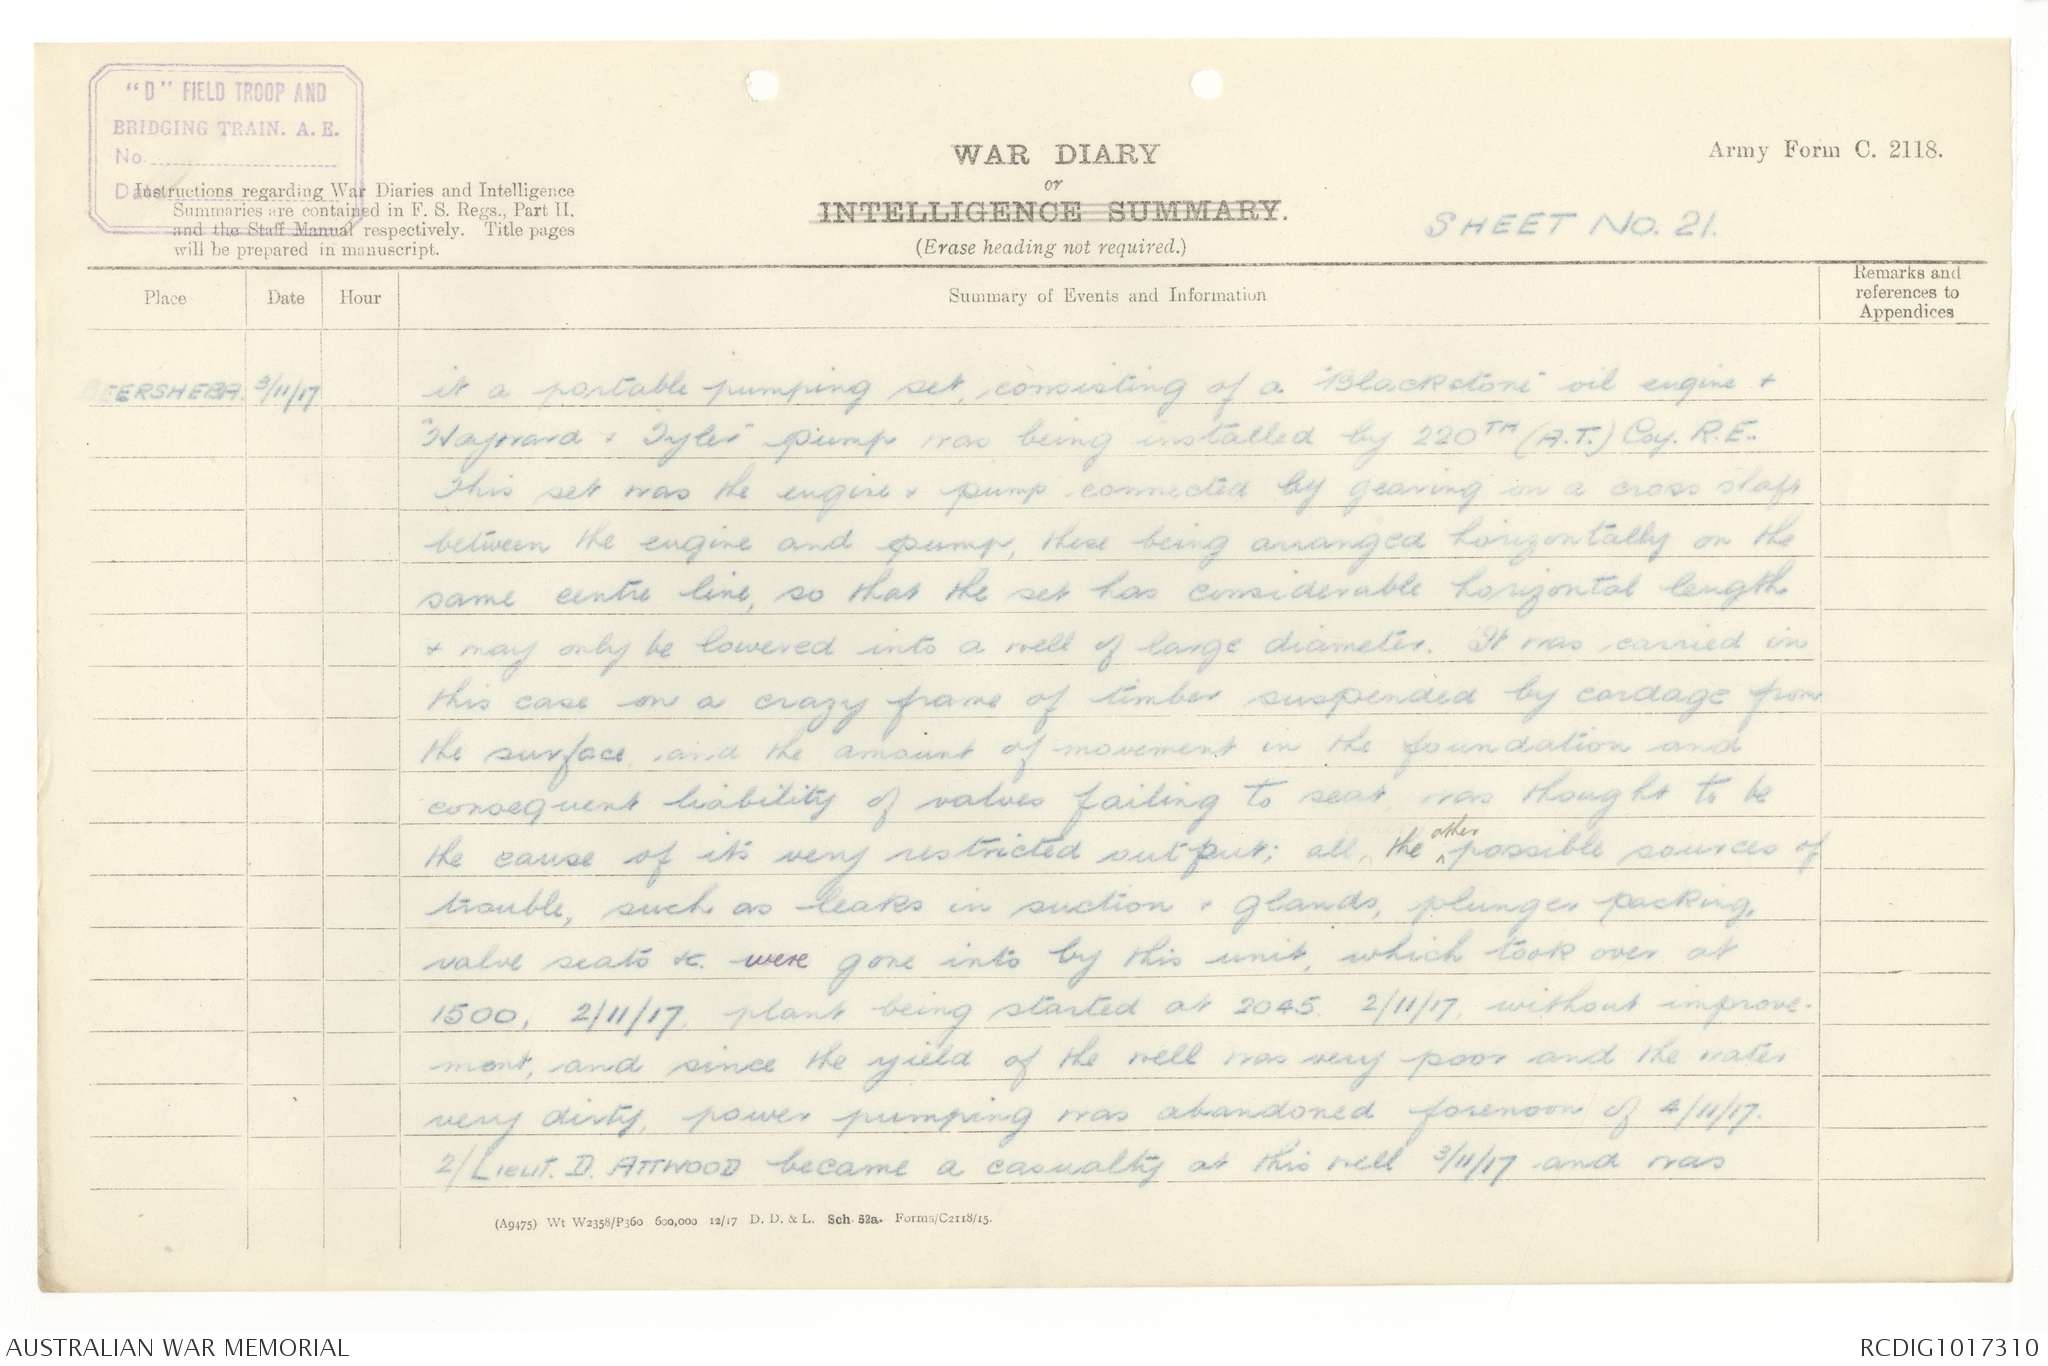 "D" FIELD TROOP AND
BRIDGING TRAIN. A. E.
No.
Date
Instructions regarding War Diaries and Intelligence
Summaries are contained in F. S. Regs., Part II.
and the Staff Manual respectively. Title pages
will be prepared in manuscript.
WAR DIARY
or
INTELLIGENCE SUMMARY.
(Erase heading not required.)
Army Form C. 2118.
SHEET No. 21.
Place Date Hour Summary of Events and Information Remarks and
references to
Appendices
BEERSHEBA. 3/11/17 it a portable pumping set, consisting of a "Blackstone" oil engine &
"Hayward & Tyler" pump was being installed by 220TH (A.T.) Coy. R.E.
This set was the engine & pump connected by gearing on a cross shaft
between the engine and pump, these being arranged horizontally on the
same centre line, so that the set has considerable horizontal length
& may only be lowered into a well of large diameter. It was carried in
this case on a crazy frame of timber suspended by cordage from
the surface and the amount of movement in the foundation and
consequent liability of valves failing to seat was thought to be
the cause of its very restricted output; all the other possible sources of
trouble, such as leaks in suction & glands, plunger packing,
valve seats &c. were gone into by this unit, which took over at
1500, 2/11/17, plant being started at 2045. 2/11/17, without improve-
ment, and since the yield of the well was very poor and the water
very dirty, power pumping was abandoned forenoon of 4/11/17.
2/Lieut. D. ATTWOOD became a casualty at this well 3/11/17 and was
(A9475) Wt W2358/P360 600,000 12/17 D. D. & L. Sch. 52a. Forms/C2118/15.
AUSTRALIAN WAR MEMORIAL
RCDIG1017310